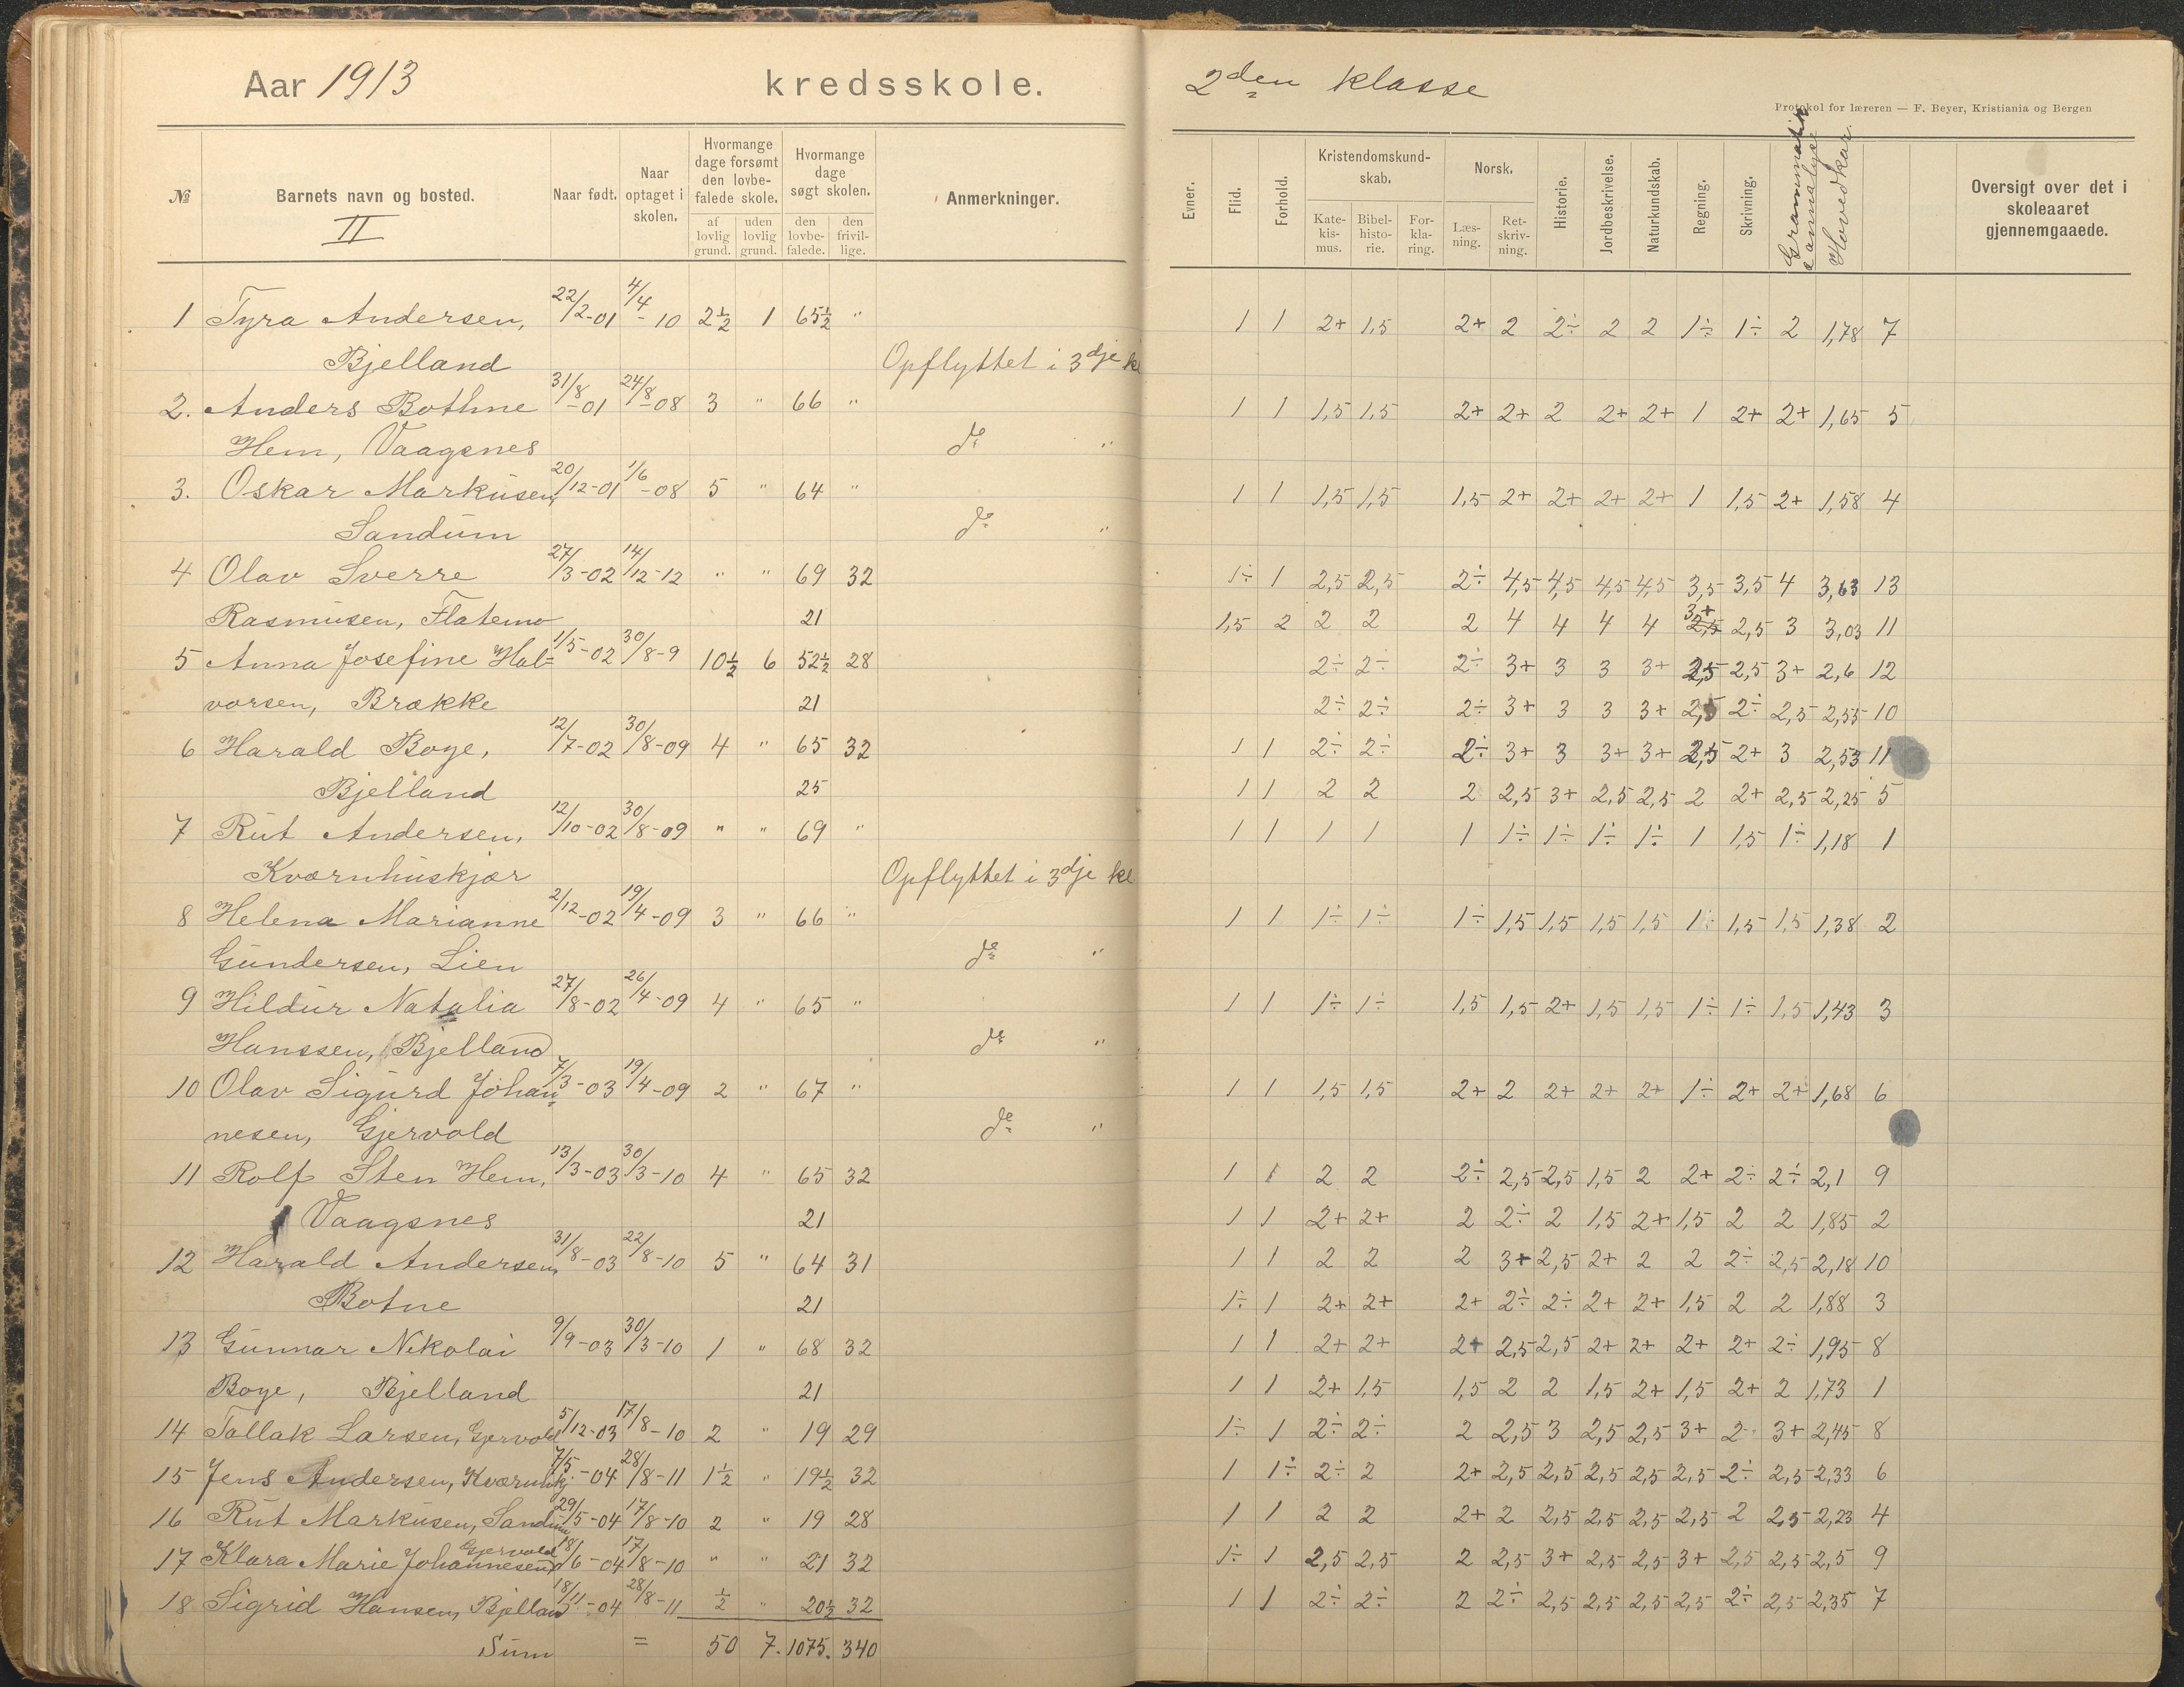 Aar 1913 kredsskole.
№ Barnets navn og bosted. Naar født. Naar optaget i skolen. Hvormange dage forsømt den lovbefalede skole. af lovlig grund. uden lovlig grund. Hvormange dage søgt skolen. den lovbefalede. den frivillige. Anmerkninger.
II
1 Tyra Andersen, 22/2-01 4/4-10 2½ 1 65½ "
Bjelland Opflyttet i 3dje kl
2. Anders Bothne 31/8-01 24/8-08 3 " 66 "
Hem, Vaagsnes do "
3. Oskar Markusen, 20/12-01 1/6-08 5 " 64 "
Sandum do "
4 Olav Sverre 27/3-02 14/12-12 " " 69 32
Rasmusen, Flatemo 21
5 Anna Josefine Hal= 1/5-02 30/8-9 10½ 6 52½ 28
vorsen, Brække 21
6 Harald Boye, 12/7-02 30/8-09 4 " 65 32
Bjelland 25
7 Rut Andersen, 12/10-02 30/8-09 " " 69 "
Kværnhuskjær Opflyttet i 3dje kl
8 Helena Marianne 2/12-02 19/4-09 3 " 66 "
Gundersen, Lien do "
9 Hildur Natalia 27/8-02 26/4-09 4 " 65 "
Hanssen, Bjelland do "
10 Olav Sigurd Johan= 7/3-03 19/4-09 2 " 67 "
nesen, Gjervold do "
11 Rolf Sten Hem, 13/3-03 30/3-10 4 " 65 32
Vaagsnes 21
12 Harald Andersen, 31/8-03 22/8-10 5 " 64 31
Botne 21
13 Gunnar Nikolai 9/9-03 30/3-10 1 " 68 32
Boye, Bjelland 21
14 Tallak Larsen, Gjervold 5/12-03 17/8-10 2 " 19 29
15 Jens Andersen, Kværnhskj. 7/5-04 28/8-11 1½ " 19½ 32
16 Rut Markusen, Sandum 29/5-04 17/8-10 2 " 19 28
17 Klara Marie Johannesen Gjervold 18/6-04 17/8-10 " " 21 32
18 Sigrid Hansen, Bjelland 18/11-04 28/8-11 ½ " 20½ 32
Sum = 50 7. 1075. 340
2den klasse
Protokol for læreren — F. Beyer, Kristiania og Bergen
Evner. Flid. Forhold. Kristendomskundskab. Katekismus. Bibelhistorie. Forklaring. Norsk. Læsning. Retskrivning. Historie. Jordbeskrivelse. Naturkundskab. Regning. Skrivning. Grammatik & analyse Hovedkar. Oversigt over det i skoleaaret gjennemgaaede.
1 1 2+ 1,5 2+ 2 2÷ 2 2 1÷ 1÷ 2 1,78 7
1 1 1,5 1,5 2+ 2+ 2 2+ 2+ 1 2+ 2+ 1,65 5
1 1 1,5 1,5 1,5 2+ 2+ 2+ 2+ 1 1,5 2+ 1,58 4
1÷ 1 2,5 2,5 2÷ 4,5 4,5 4,5 4,5 3,5 3,5 4 3,63 13
1,5 2 2 2 2 4 4 4 4 3+ 2,5 2,5 3 3,03 11
2÷ 2÷ 2÷ 3+ 3 3 3+ 2,5 2,5 3+ 2,6 12
2÷ 2÷ 2÷ 3+ 3 3 3+ 2,5 2÷ 2,5 2,55 10
1 1 2÷ 2÷ 2÷ 3+ 3 3+ 3+ 2,5 2+ 3 2,53 11
1 1 2 2 2 2,5 3+ 2,5 2,5 2 2+ 2,5 2,25 5
1 1 1 1 1 1÷ 1÷ 1÷ 1÷ 1 1,5 1÷ 1,18 1
1 1 1÷ 1÷ 1÷ 1,5 1,5 1,5 1,5 1÷ 1,5 1,5 1,38 2
1 1 1÷ 1÷ 1,5 1,5 2+ 1,5 1,5 1÷ 1÷ 1,5 1,43 3
1 1 1,5 1,5 2+ 2 2+ 2+ 2+ 1÷ 2+ 2+ 1,68 6
1 1 2 2 2÷ 2,5 2,5 1,5 2 2+ 2÷ 2÷ 2,1 9
1 1 2+ 2+ 2 2÷ 2 1,5 2+ 1,5 2 2 1,85 2
1 1 2 2 2 3+ 2,5 2+ 2 2 2÷ 2,5 2,18 10
1÷ 1 2+ 2+ 2+ 2÷ 2÷ 2+ 2+ 1,5 2 2 1,88 3
1 1 2+ 2+ 2+ 2,5 2,5 2+ 2+ 2+ 2+ 2÷ 1,95 8
1 1 2+ 1,5 1,5 2 2 1,5 2+ 1,5 2+ 2 1,73 1
1÷ 1 2÷ 2÷ 2 2,5 3 2,5 2,5 3+ 2÷ 3+ 2,45 8
1 1÷ 2÷ 2 2+ 2,5 2,5 2,5 2,5 2,5 2÷ 2,5 2,33 6
1 1 2 2 2+ 2 2,5 2,5 2,5 2,5 2 2,5 2,23 4
1÷ 1 2,5 2,5 2 2,5 3+ 2,5 2,5 3+ 2,5 2,5 2,5 9
1 1 2÷ 2÷ 2 2÷ 2,5 2,5 2,5 2,5 2÷ 2,5 2,35 7